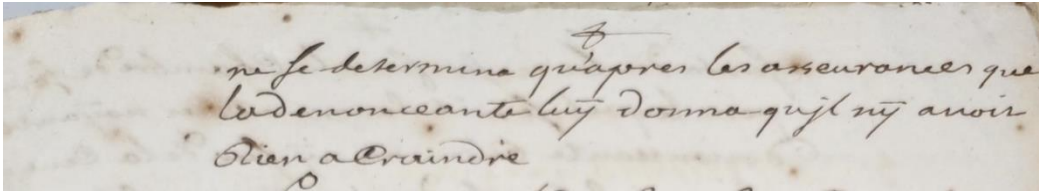 ne se determina qu'apres les asseurances que
la denonceante luÿ donna qu'jl nÿ avoir
Rien a Craindre